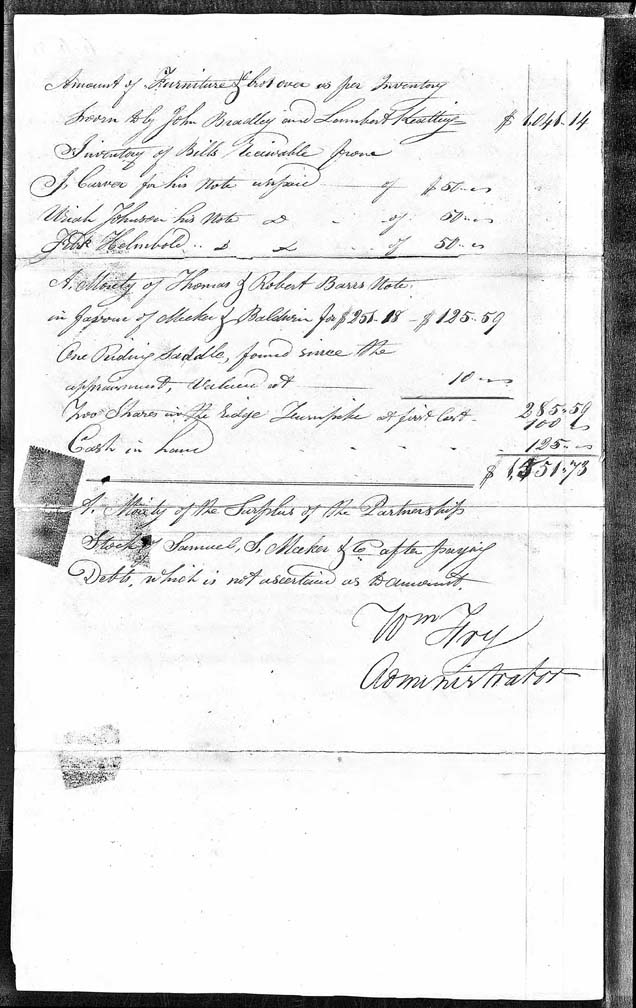 Amount of Furniture &c brot over as per Inventory
Sworn to by John Bradley and Lambert Keatting $ 1,041-14
Inventory of Bills Receivable from
J. Carver for his Note unpaid of $50-
Uriah Johnson his Note Do - of 50-
Fredk Helmbold " Do Do - of 50-
A. Moiety of Thomas & Robert Barrs Note
in favour of Meeker & Baldwin for $251-18 - $125-59
One Riding Saddle, found since the
appraisment, Valued at 10- 285-59
Two Shares in the Ridge Turnpike at first Cost - 100
Cash in hand 125-
$ 1,551-73
A. Moiety of the Surplus of the Partnership
Stock of Samuel, S, Meeker & Co after paying
Debts, which is not ascertained as to amount.
Wm Fry
Administrator